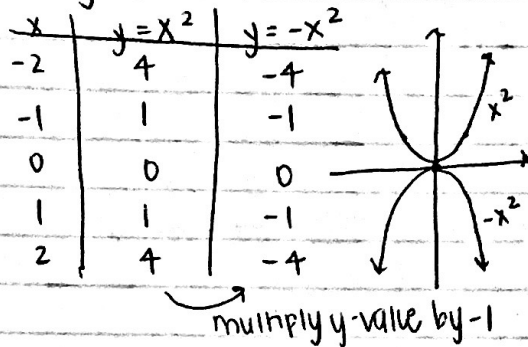 x y = x² y = -x²
-2 4 -4
-1 1 -1
0 0 0
1 1 -1
2 4 -4
x²
-x²
multiply y-value by -1